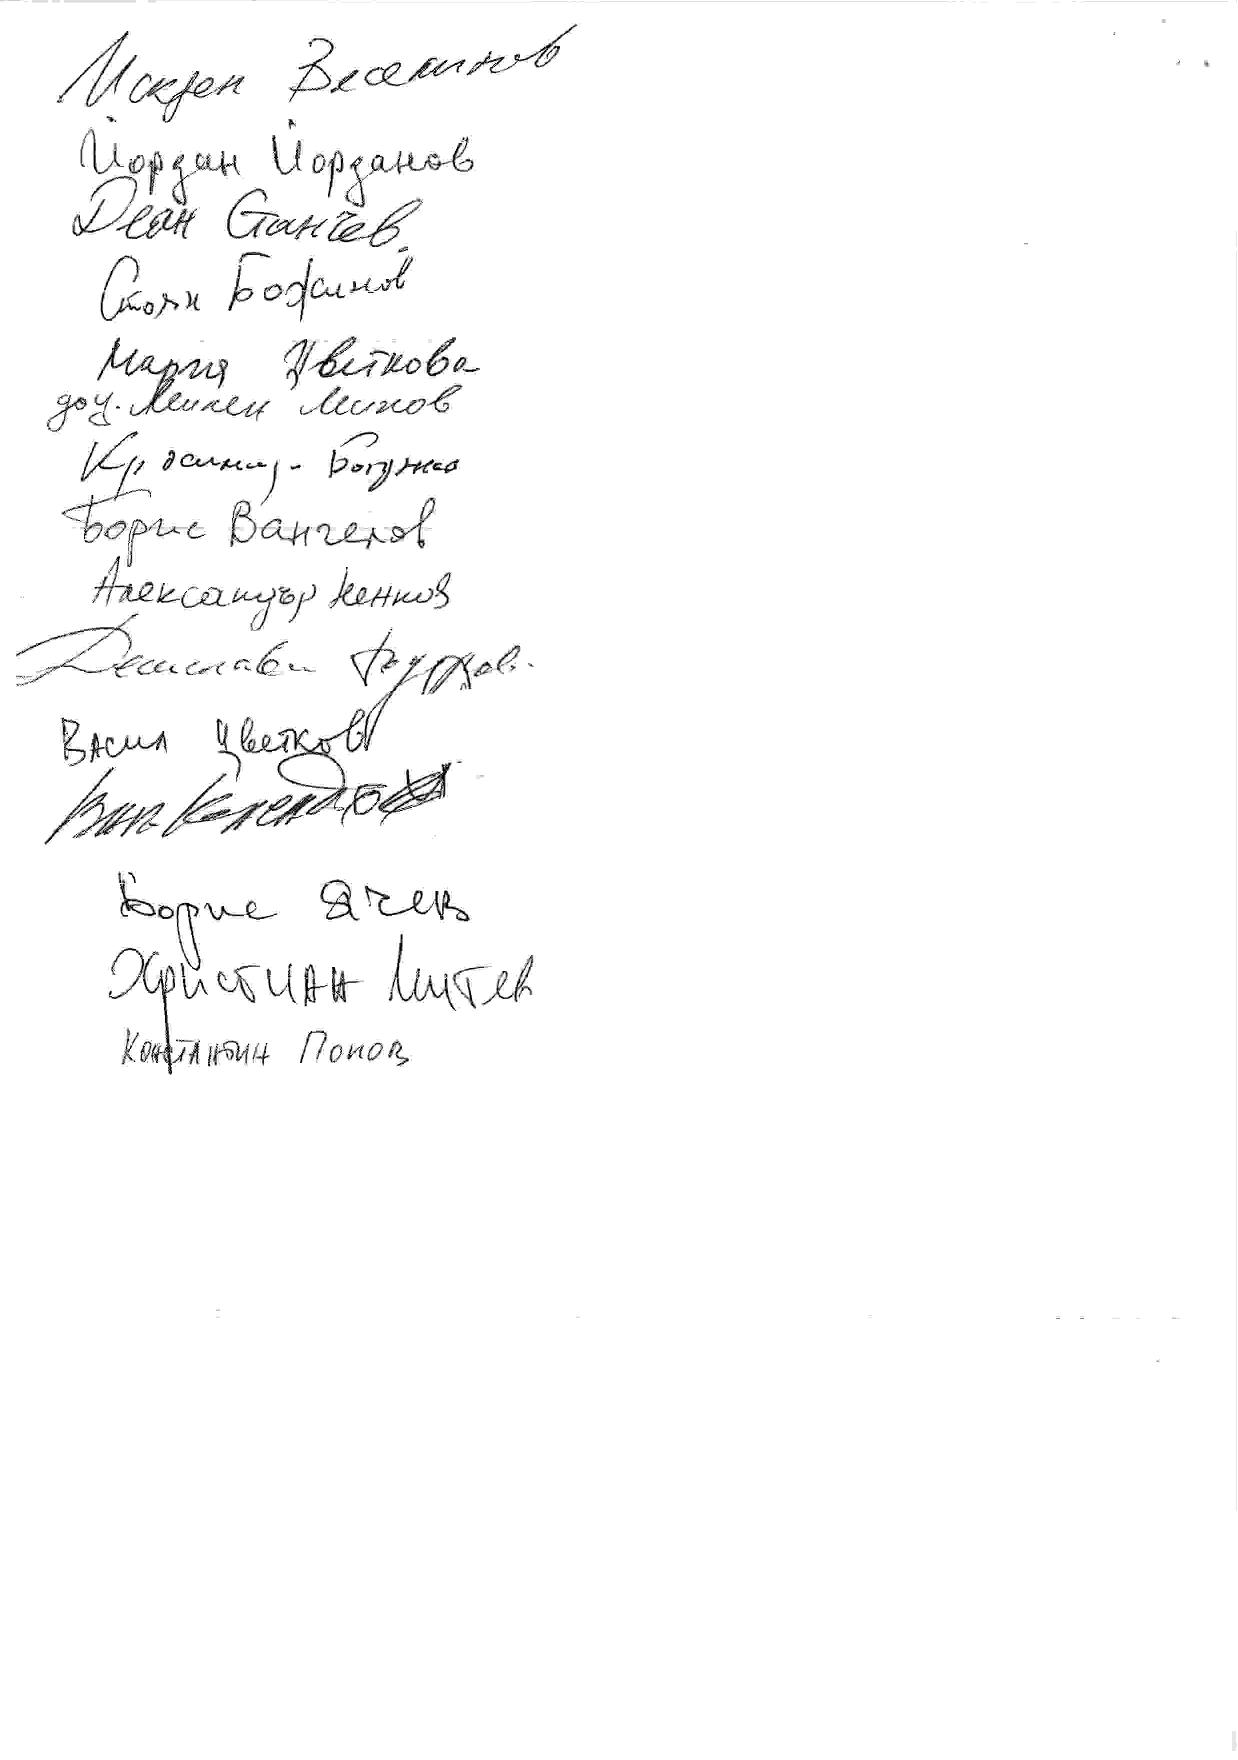 Искрен Веселинов
Йордан Йорданов
Деан Станчев
Стоян Божинов
Мария Цветкова
доц. Милен Михов
Красимир Богданов
Борис Вангелов
Александър Ненков
Десислав
Васил Цветков
Борис Ячев
Християн Митев
Константин Попов